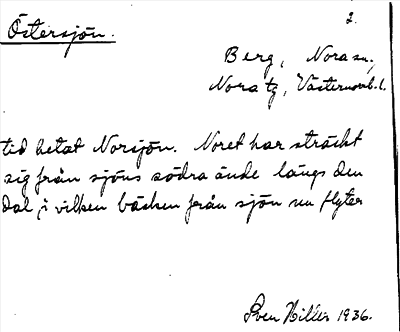 Östersjön.
2.
Berg, Nora sn.,
Nora tg, Västernorrl. l.
tid hetat Norsjön. Noret har sträckt
sig från sjöns södra ände längs den
dal, i vilken bäcken från sjön nu flyter
Sven Hillin 1936.